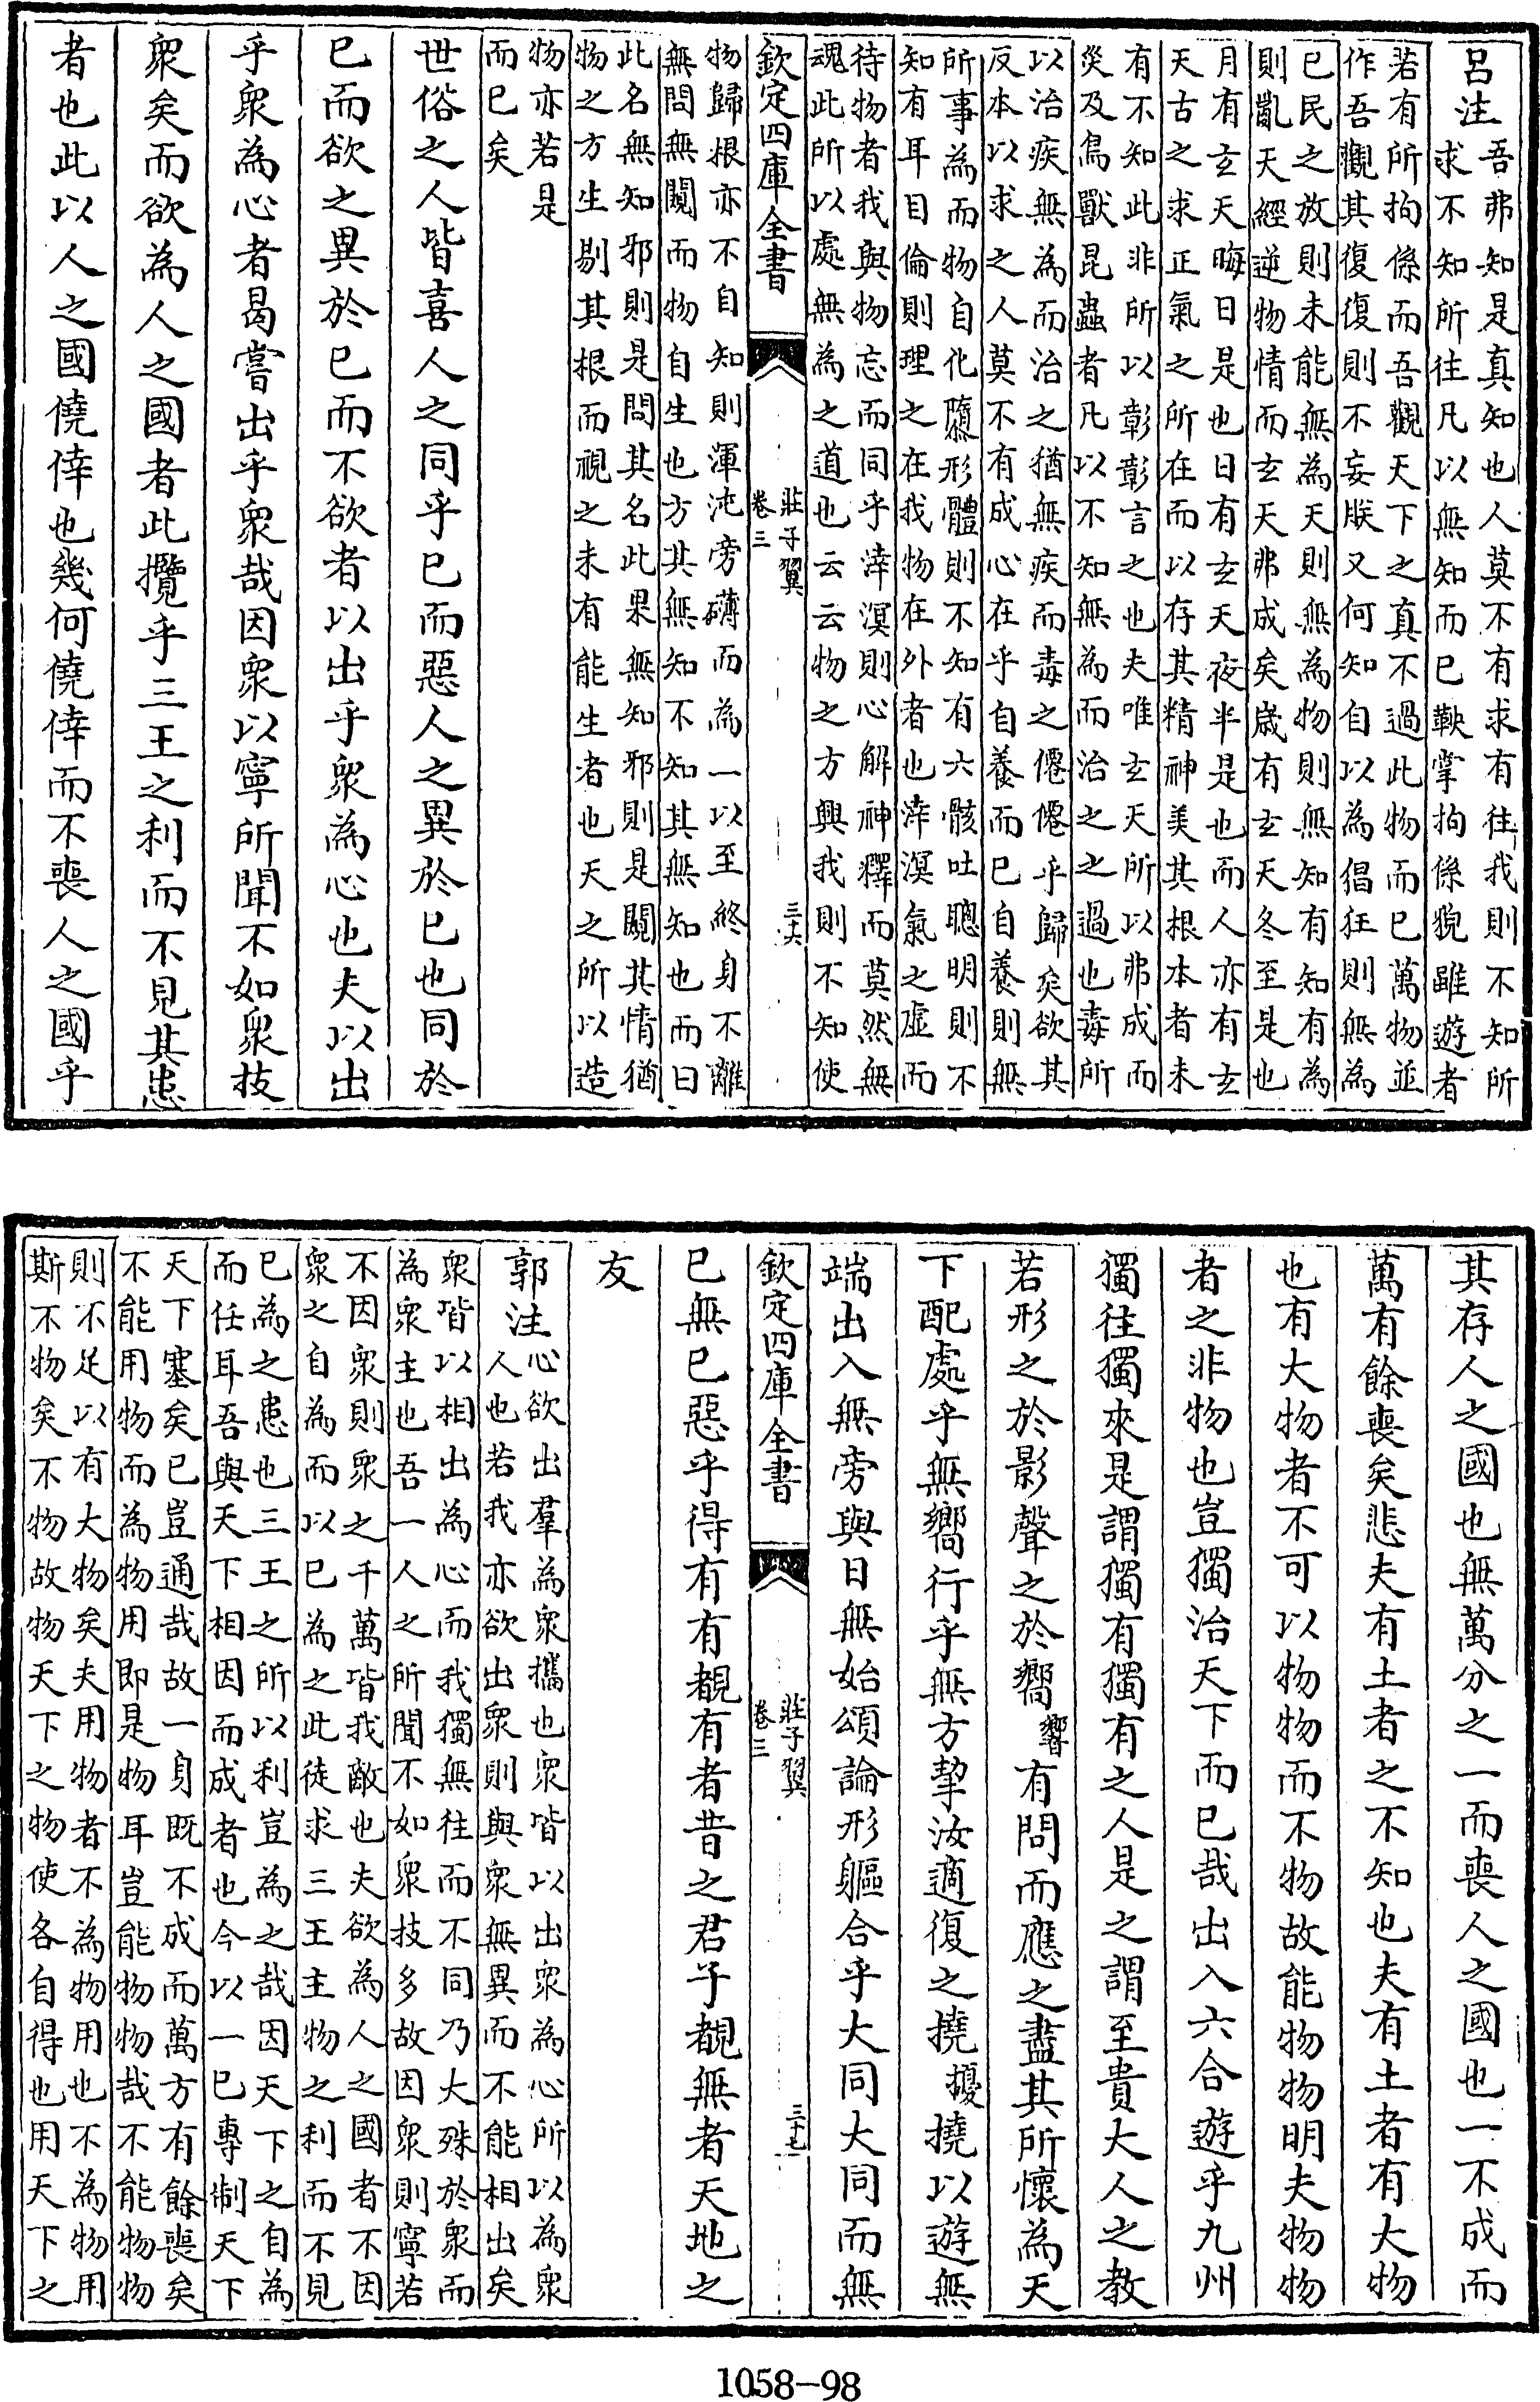 呂注吾弗知是真知也人莫不有求有往我則不知所
求不知所往凡以無知而已鞅掌拘係貌雖遊者
若有所拘係而吾觀天下之真不過此物而已萬物並
作吾觀其復復則不妄朕又何知自以為倡狂則無為
已民之放則未能無為天則無為物則無知有知有為
則亂天經逆物情而玄天弗成矣歲有玄天冬至是也
月有玄天晦日是也日有玄天夜半是也而人亦有玄
天古之求正氣之所在而以存其精神美其根本者未
有不知此非所以彰彰言之也夫唯玄天所以弗成而
災及鳥獸昆蟲者凡以不知無為而治之之過也毒所
以治疾無為而治之猶無疾而毒之僊僊乎歸矣欲其
反本以求之人莫不有成心在乎自養而已自養則無
所事為而物自化墮形體則不知有六骸吐聰明則不
知有耳目倫則理之在我物在外者也涬溟氣之虛而
待物者我與物忘而同乎涬溟則心解神釋而莫然無
魂此所以處無為之道也云云物之方興我則不知使
欽定四庫全書
莊子翼
卷三
三六
物歸根亦不自知則渾沌旁礴而為一以至終身不離
無問無闚而物自生也方其無知不知其無知也而曰
此名無知邪則是問其名此果無知邪則是闚其情猶
物之方生剔其根而視之未有能生者也天之所以造
物亦若是
而已矣
世俗之人皆喜人之同乎已而惡人之異於已也同於
已而欲之異於已而不欲者以出乎衆為心也夫以出
乎衆為心者曷嘗出乎衆哉因衆以寧所聞不如衆技
衆矣而欲為人之國者此攬乎三王之利而不見其患
者也此以人之國僥倖也幾何僥倖而不喪人之國乎
其存人之國也無萬分之一而喪人之國也一不成而
萬有餘喪矣悲夫有土者之不知也夫有土者有大物
也有大物者不可以物物而不物故能物物明夫物物
者之非物也豈獨治天下而已哉出入六合遊乎九州
獨往獨來是謂獨有獨有之人是之謂至貴大人之教
若形之於影聲之於嚮響有問而應之盡其所懷為天
下配處乎無嚮行乎無方挈汝適復之撓擾撓以遊無
端出入無旁與日無始頌論形軀合乎大同大同而無
欽定四庫全書
莊子翼
卷三
三十七
已無已惡乎得有有覩有者昔之君子覩無者天地之
友
郭注心欲出羣為衆攜也衆皆以出衆為心所以為衆
人也若我亦欲出衆則與衆無異而不能相出矣
衆皆以相出為心而我獨無往而不同乃大殊於衆而
為衆主也吾一人之所聞不如衆技多故因衆則寧若
不因衆則衆之千萬皆我敵也夫欲為人之國者不因
衆之自為而以已為之此徒求三王主物之利而不見
已為之患也三王之所以利豈為之哉因天下之自為
而任耳吾與天下相因而成者也今以一已專制天下
天下塞矣已豈通哉故一身既不成而萬方有餘喪矣
不能用物而為物用即是物耳豈能物物哉不能物物
則不足以有大物矣夫用物者不為物用也不為物用
斯不物矣不物故物天下之物使各自得也用天下之
1058-98